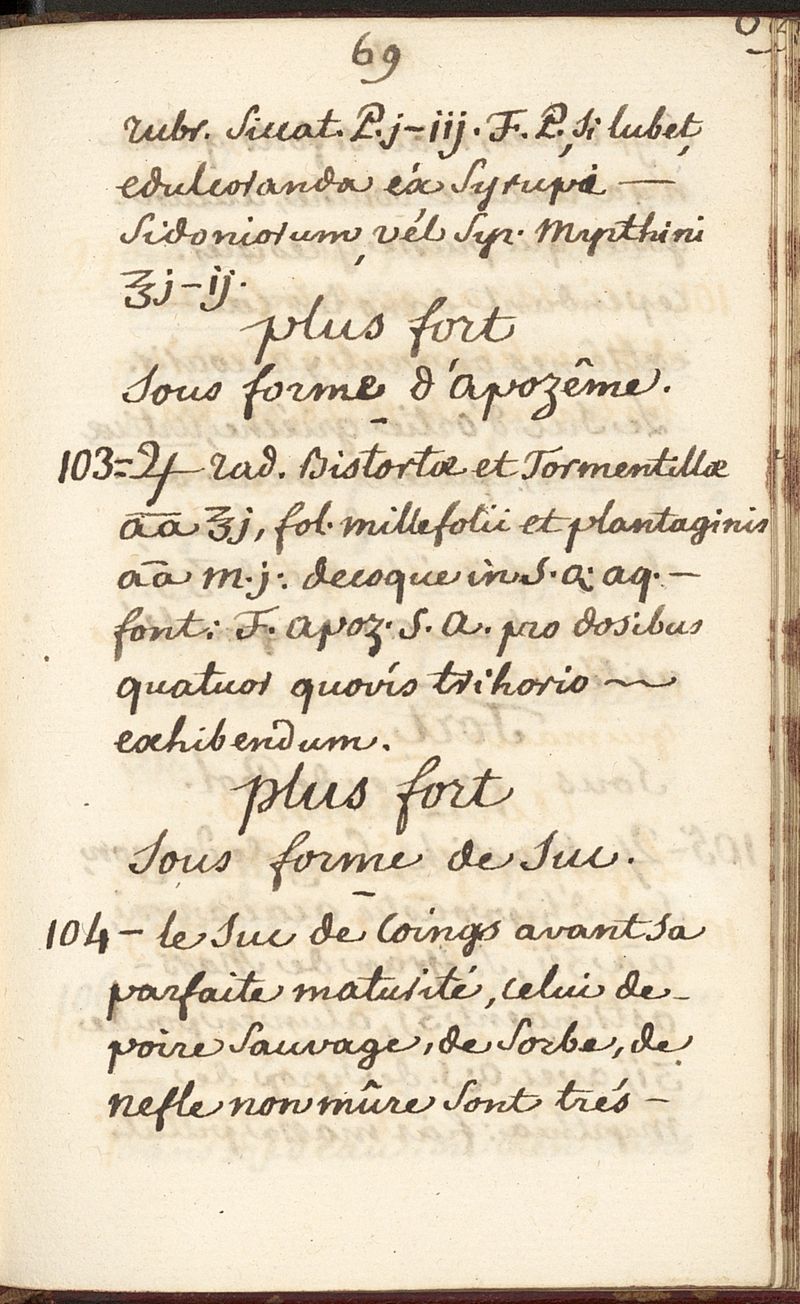 69
rubr. Siccat. P.j-iij. F. P. si lubet
edulcoranda éx Syrupi —
Sidoniorum vél Syr. Myrthini
℥j-ij.
plus fort
sous forme d'apozême.
103=♃ rad. Bistortæ et Tormentillæ
āā ℥j, fol. millefolii et plantaginis
āā m.j: decoque in S.q. aq. —
font: F. apoz. S. A. pro dosibus
quatuor quovis trihorio ~
exhibendum.
plus fort
sous forme de Suc.
104 — le Suc de Coings avant sa
parfaite maturité, celui de -
poire Sauvage, de Sorbe, de
nefle non mûre sont trés —